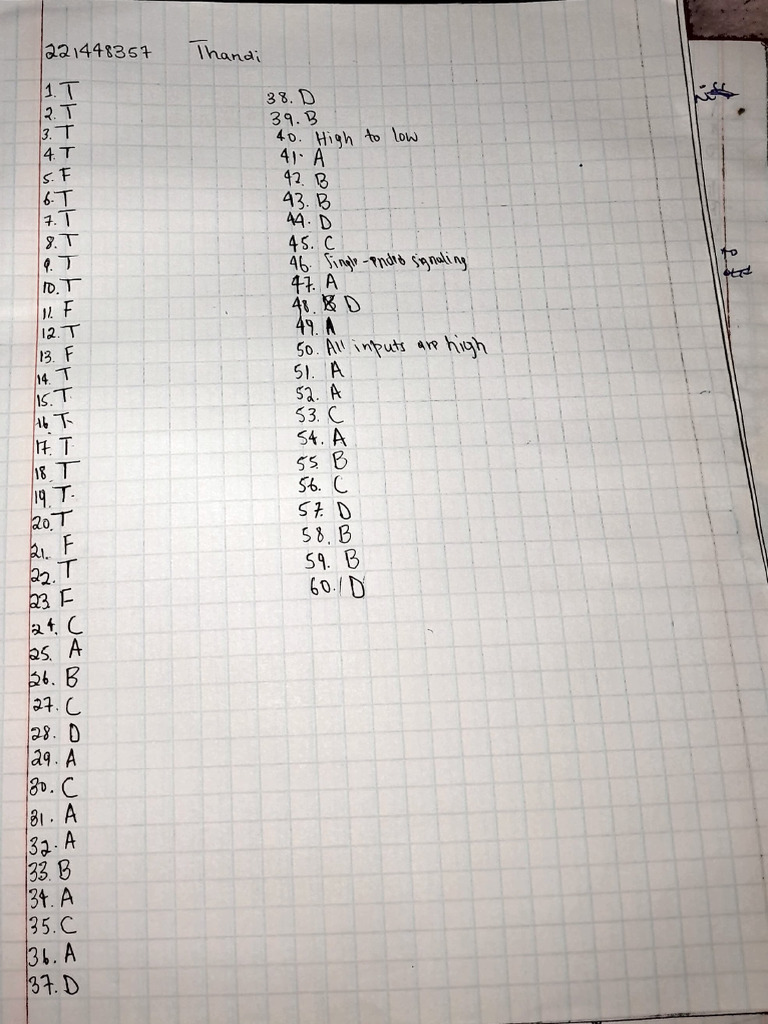 221448357 Thandi
1. T
2. T
3. T
4. T
5. F
6. T
7. T
8. T
9. T
10. T
11. F
12. T
13. F
14. T
15. T
16. T
17. T
18. T
19. T.
20. T
21. F
22. T
23 F
24. C
25. A
26. B
27. C
28. D
29. A
30. C
31. A
32. A
33. B
34. A
35. C
36. A
37. D
38. D
39. B
40. High to low
41. A
42. B
43. B
44. D
45. C
46. Single-ended signaling
47. A
48. D
49. A
50. All inputs are high
51. A
52. A
53. C
54. A
55. B
56. C
57. D
58. B
59. B
60. D